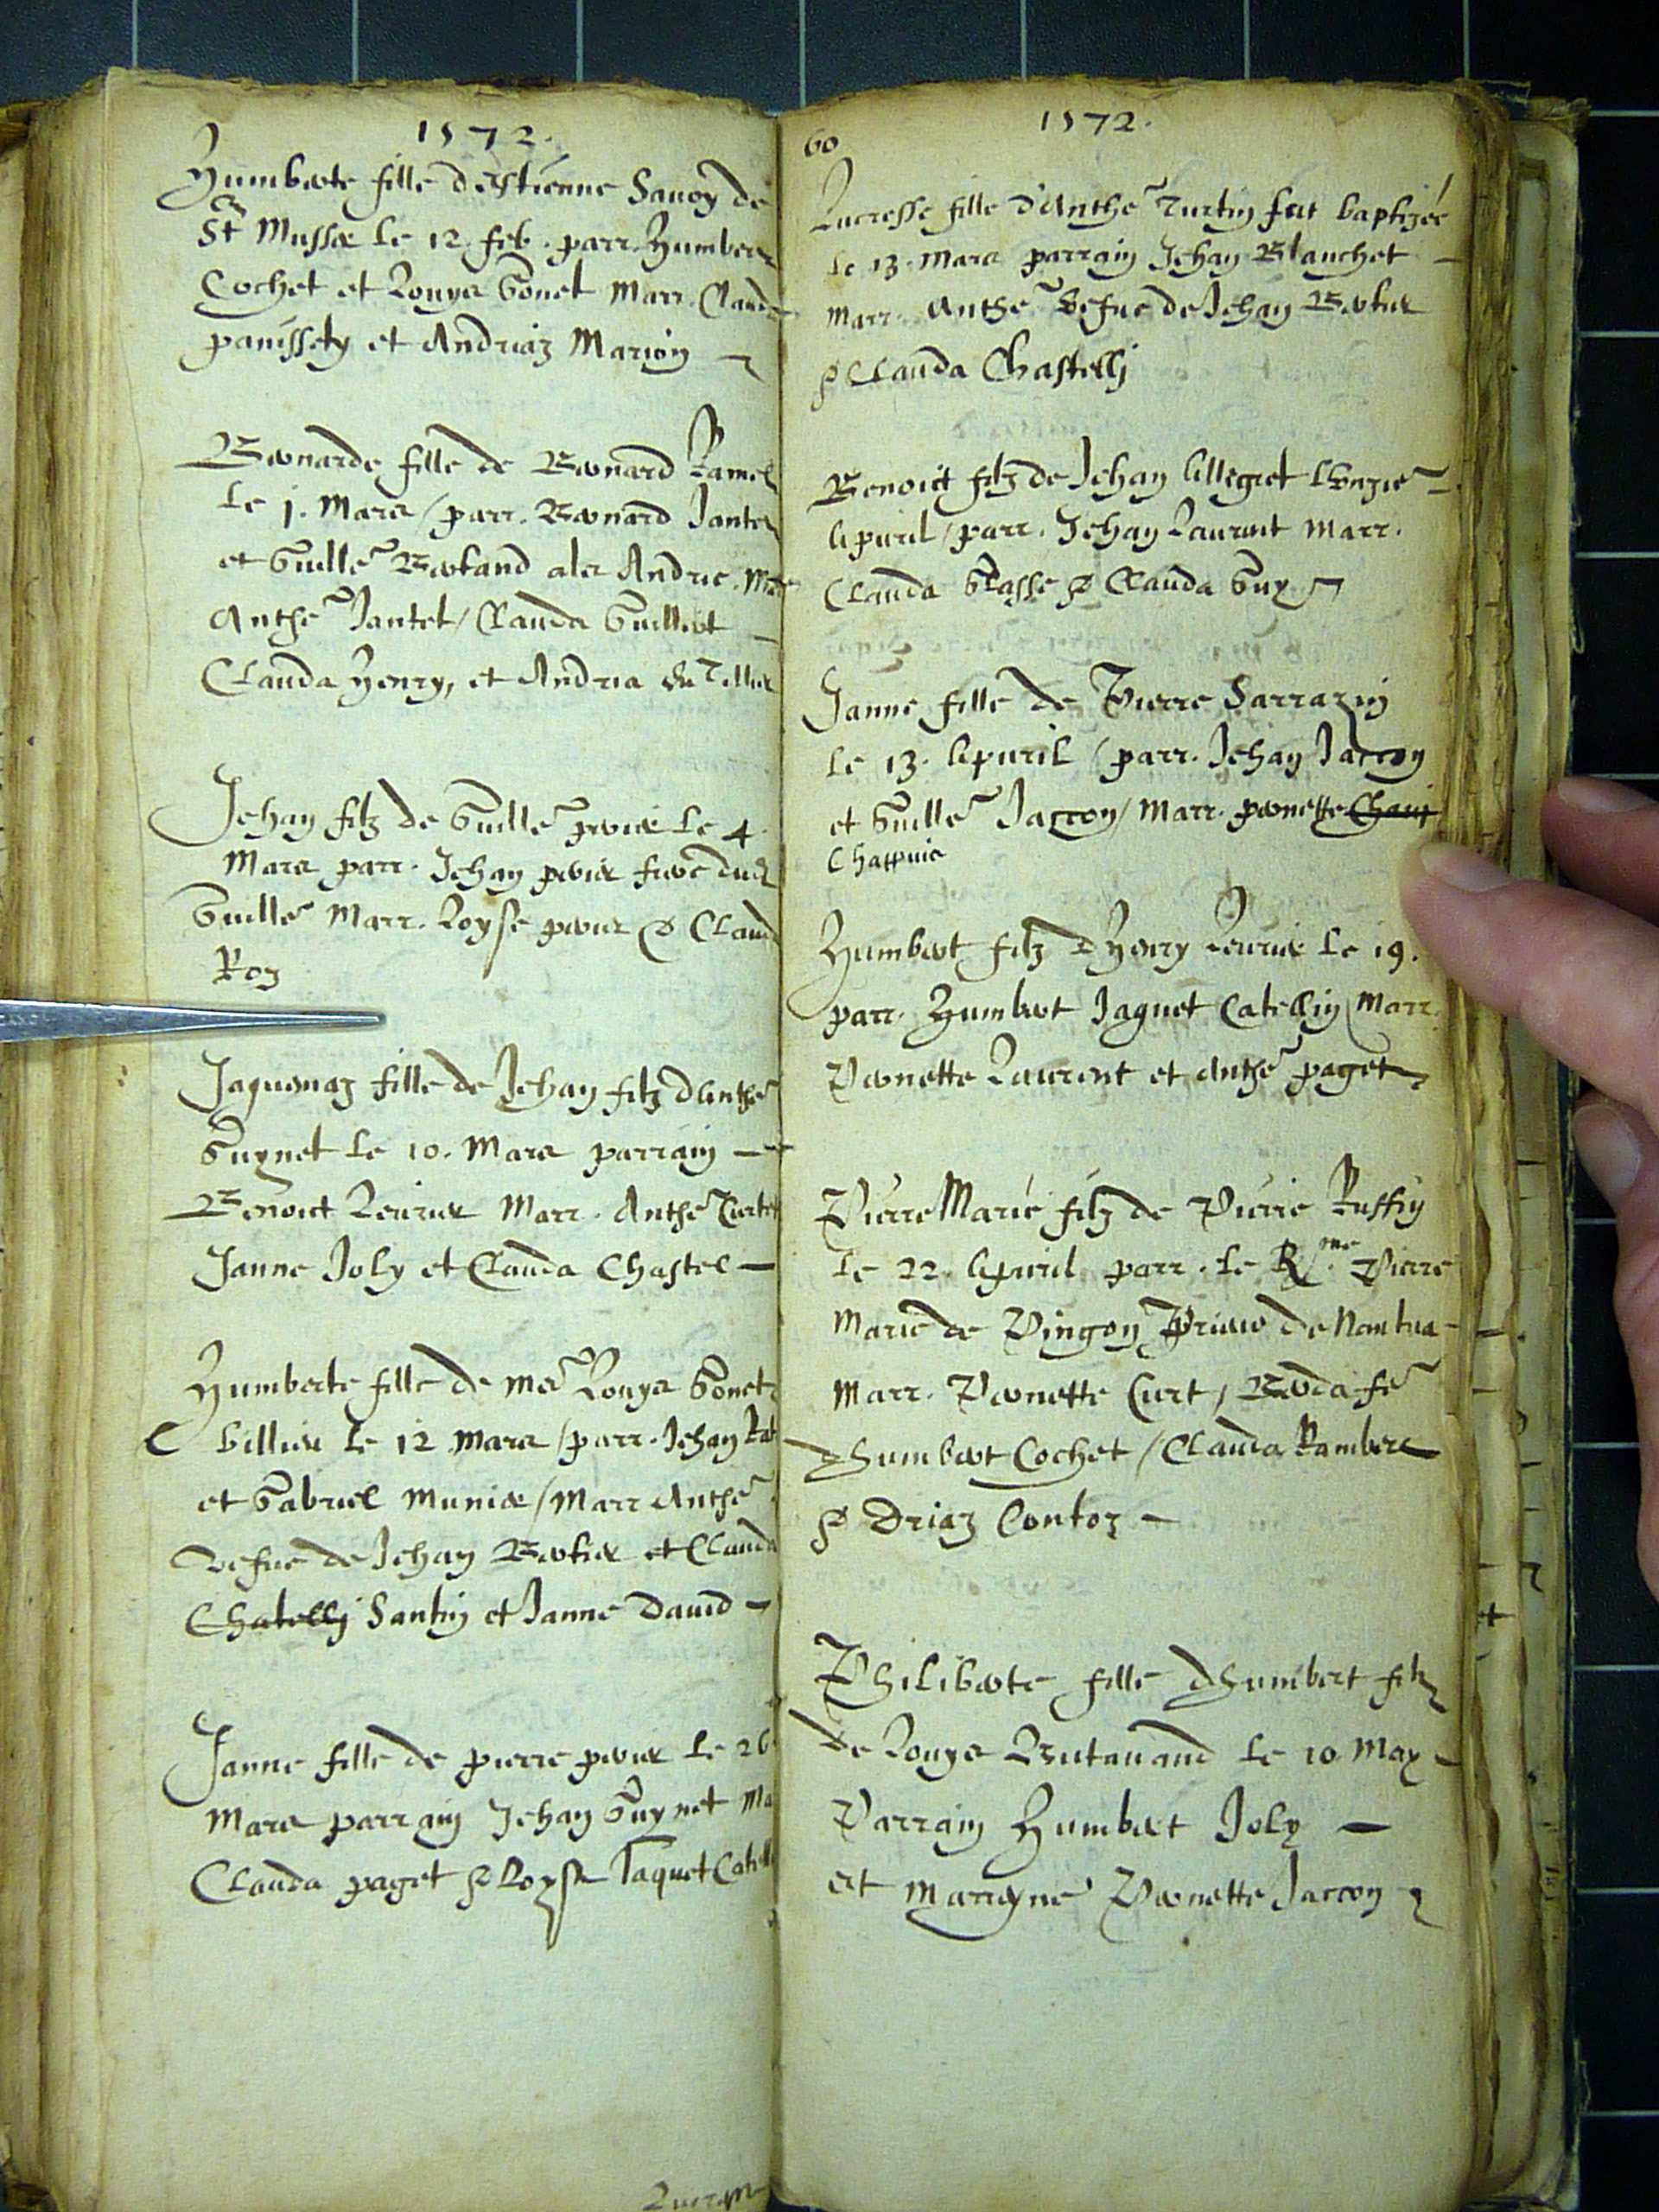 1572.
Humberte fille d'Estienne Savoy de
St Mussa le 12. feb. parr. Humbert
Cochet et Louys Gonet Marr. Claud
panissety et Andriaz Marion
Bernarde fille de Bernard Ramel
Le j. Mars / parr. Bernard Jantet
et Guille Bertand als Andrie. Ma
Anthe Jantet / Clauda Guillert
Clauda Henry, et Andria
Jehan filz de Guille perier Le 4.
Mars parr. Jehan perier frere dud
Guille Marr. Loyse perier & Claud
Roz
Jaquemaz fille de Jehan filz d'Anthe
Guynet le 10. Mars parrain
Benoict Levrier Marr. Anthe Curtet
Janne Joly et Clauda Chastel
Humberte fille de me Louys Gonet
C billier le 12 mars / parr. Jehan
et Gabriel Munier / Marr Anthe
Vefue de Jehan Bertier et Clauda
Chatelly Santin et Janne David
Janne fille de pierre perier le 26
Mars parrain Jehan Guynet Ma
Clauda paget & Loyse Jaquet Catell
60
1572.
Lucresse fille d'Anthe Turtin fut baptizée
le 13. Mars parrain Jehan Blanchet
Marr. Anthe Vefue de Jehan Bertier
& Clauda Chastelly
Benoict filz de Jehan Allegret
Apvril / parr. Jehan Laurent Marr.
Clauda Grasse & Clauda Guy
Janne fille de Pierre Sarrazin
Le 13. Apvril / parr. Jehan Jaccon
et Guille Jaccon / Marr. pernette Chaut
Chappuis
Humbert filz d'Henry Levrier Le 19.
parr. Humbert Jaquet Catellin / Marr.
Pernette Laurent et Anthe paget
Pierre Marie filz de Pierre Ruffin
Le 22. Apvril parr. Le R.me Pierre
Marie de Pingon Prieur de Nantua
Marr. Pernette Curt / Barda fe
d'humbert Cochet / Clauda Rambert
& Driaz Contoz
Philiberte fille d'humbert filz
de Louys Brutavand le 10 May
Parrain Humbert Joly
et Marreyne Pernette Jaccon